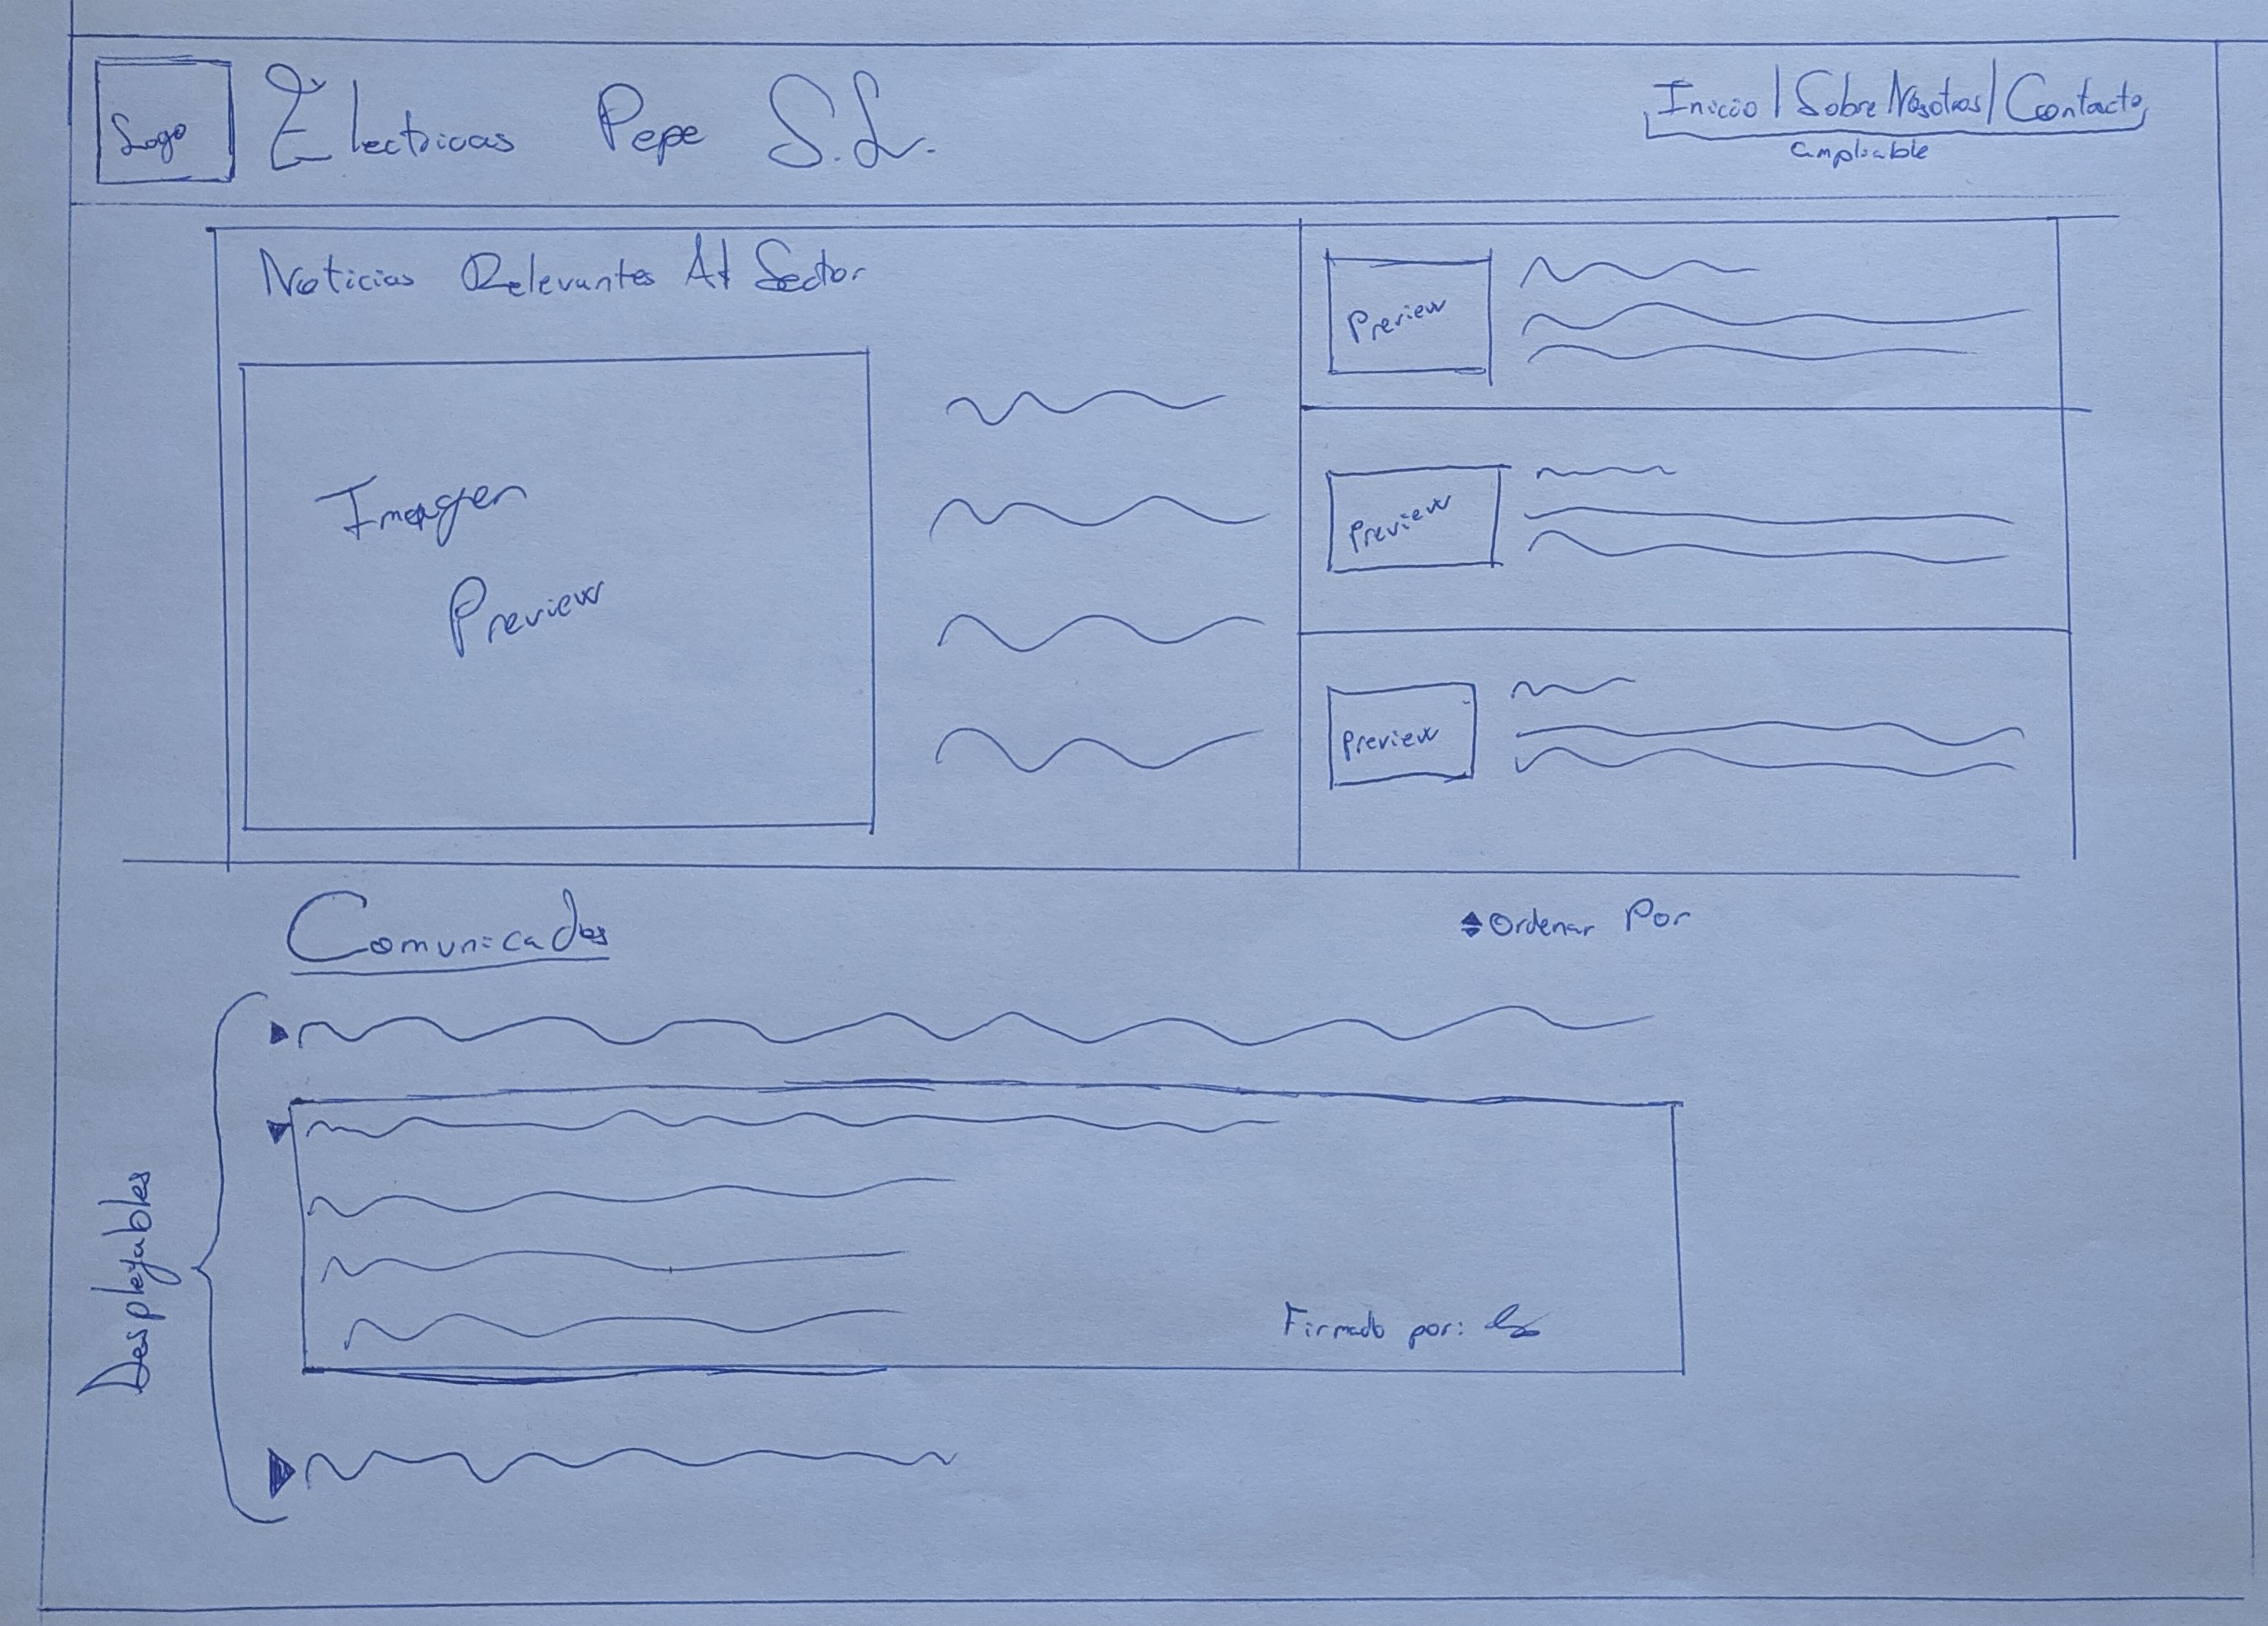 Logo
Electricas Pepe S.L.
Inicio | Sobre Nosotros | Contacto
ampliable
Noticias Relevantes Al Sector
Imagen
Preview
Preview
Preview
Preview
Comunicados
Ordenar Por
Desplegables
Firmado por: